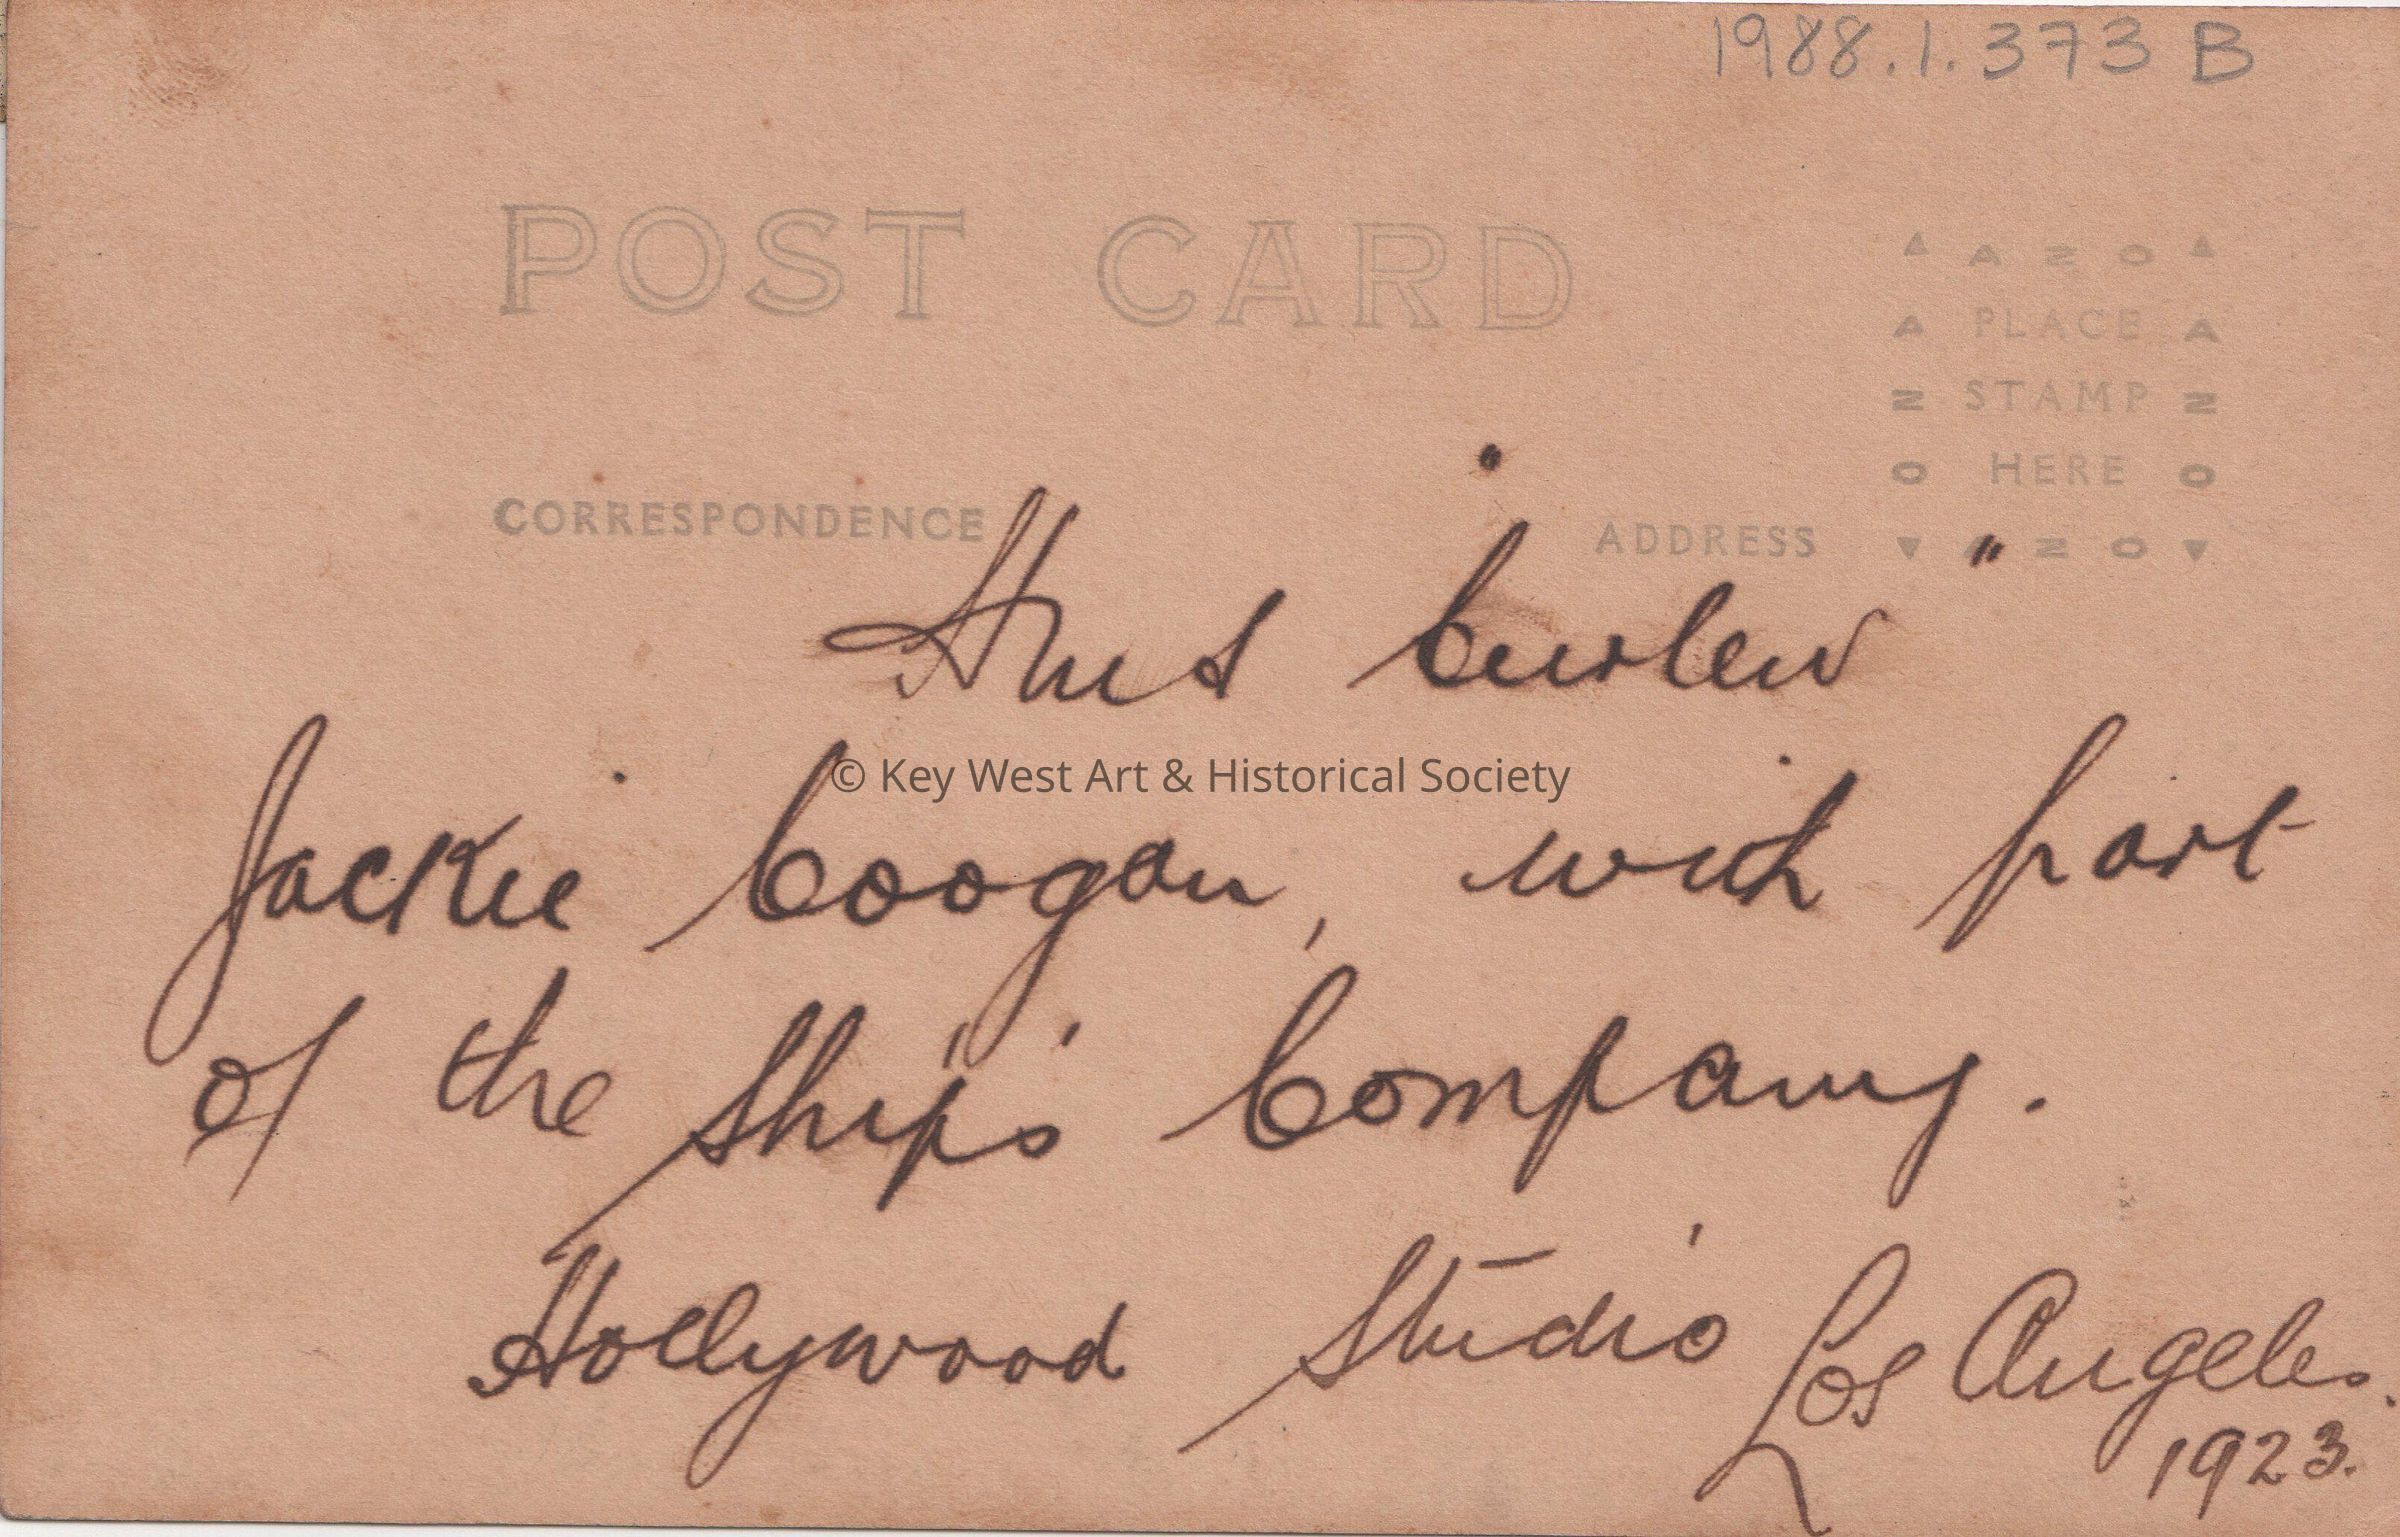 1988.1.373 B
POST CARD
▲ A Z O ▲
A PLACE A
Z STAMP Z
O HERE O
▼ A Z O ▼
CORRESPONDENCE
ADDRESS
Hms "Curlew"
© Key West Art & Historical Society
Jackie Coogan, with part
of the Ship's Company.
Hollywood Studio Los Angeles.
1923.